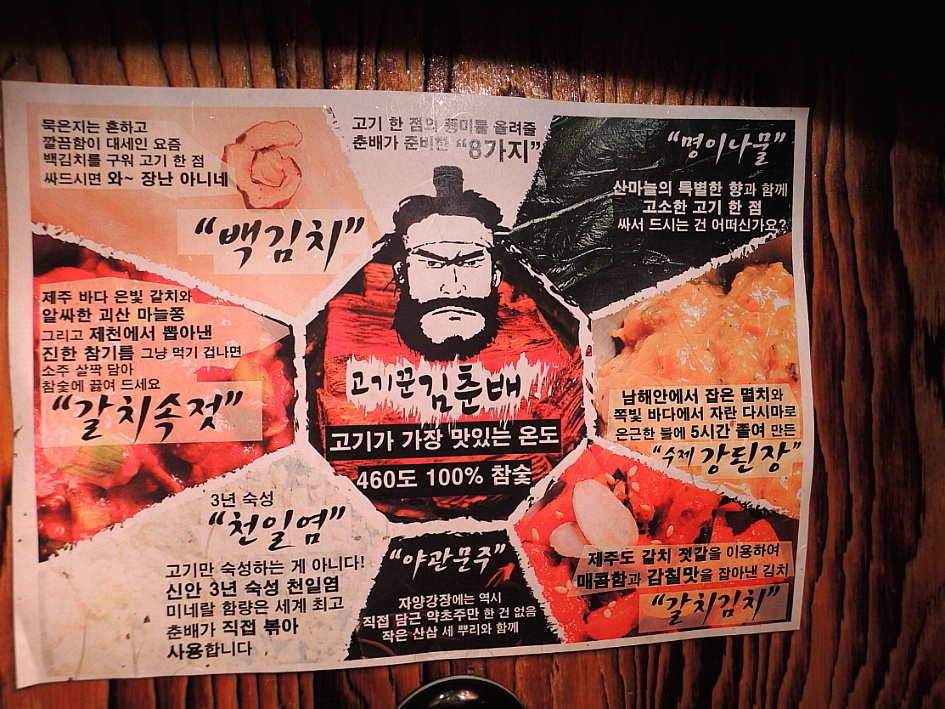 고기 한 점의 풍미를 올려줄
춘배가 준비한 “8가지”
묵은지는 흔하고
깔끔함이 대세인 요즘
백김치를 구워 고기 한 점
싸드시면 와~ 장난 아니네
“백김치”
“명이나물”
산마늘의 특별한 향과 함께
고소한 고기 한 점
싸서 드시는 건 어떠신가요?
제주 바다 은빛 갈치와
알싸한 괴산 마늘쫑
그리고 제천에서 뽑아낸
진한 참기름 그냥 먹기 겁나면
소주 살짝 담아
참숯에 끓여 드세요
“갈치속젓”
고기꾼 김춘배
고기가 가장 맛있는 온도
460도 100% 참숯
남해안에서 잡은 멸치와
쪽빛 바다에서 자란 다시마로
은근한 불에 5시간 졸여 만든
“수제 강된장”
3년 숙성
“천일염”
고기만 숙성하는 게 아니다!
신안 3년 숙성 천일염
미네랄 함량은 세계 최고
춘배가 직접 볶아
사용합니다
“야관문주”
자양강장에는 역시
직접 담근 약초주만 한 건 없음
작은 산삼 세 뿌리와 함께
제주도 갈치 젓갈을 이용하여
매콤함과 감칠맛을 잡아낸 김치
“갈치김치”